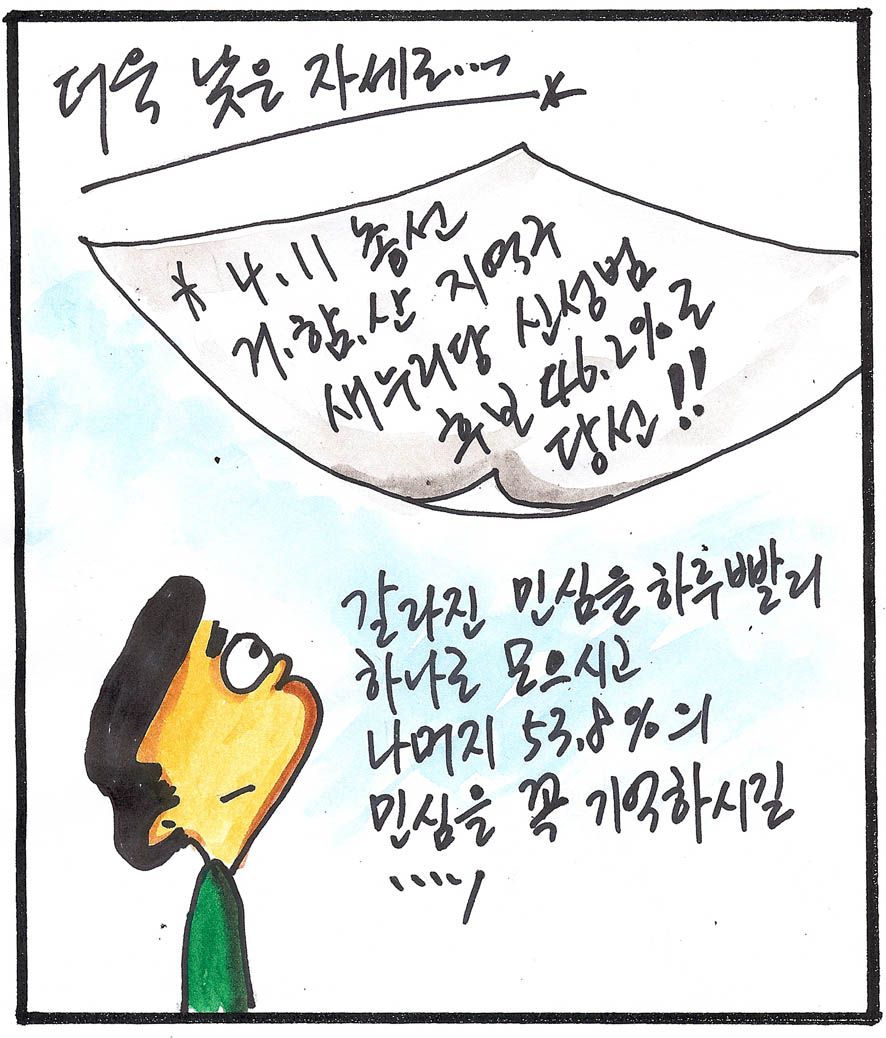 더욱 낮은 자세로....
* 4.11 총선
거.함.산 지역구
새누리당 신성범
후보 46.2%로
당선!!
갈라진 민심을 하루빨리
하나로 모으시고
나머지 53.8%의
민심을 꼭 기억하시길
.....